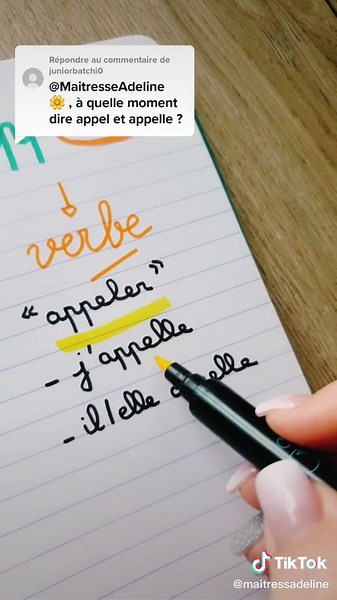 Répondre au commentaire de
juniorbatchi0
@MaitresseAdeline
🌼 , à quelle moment
dire appel et appelle ?
verbe
"appeler"
- j'appelle
- il/elle
TikTok
@maitressadeline